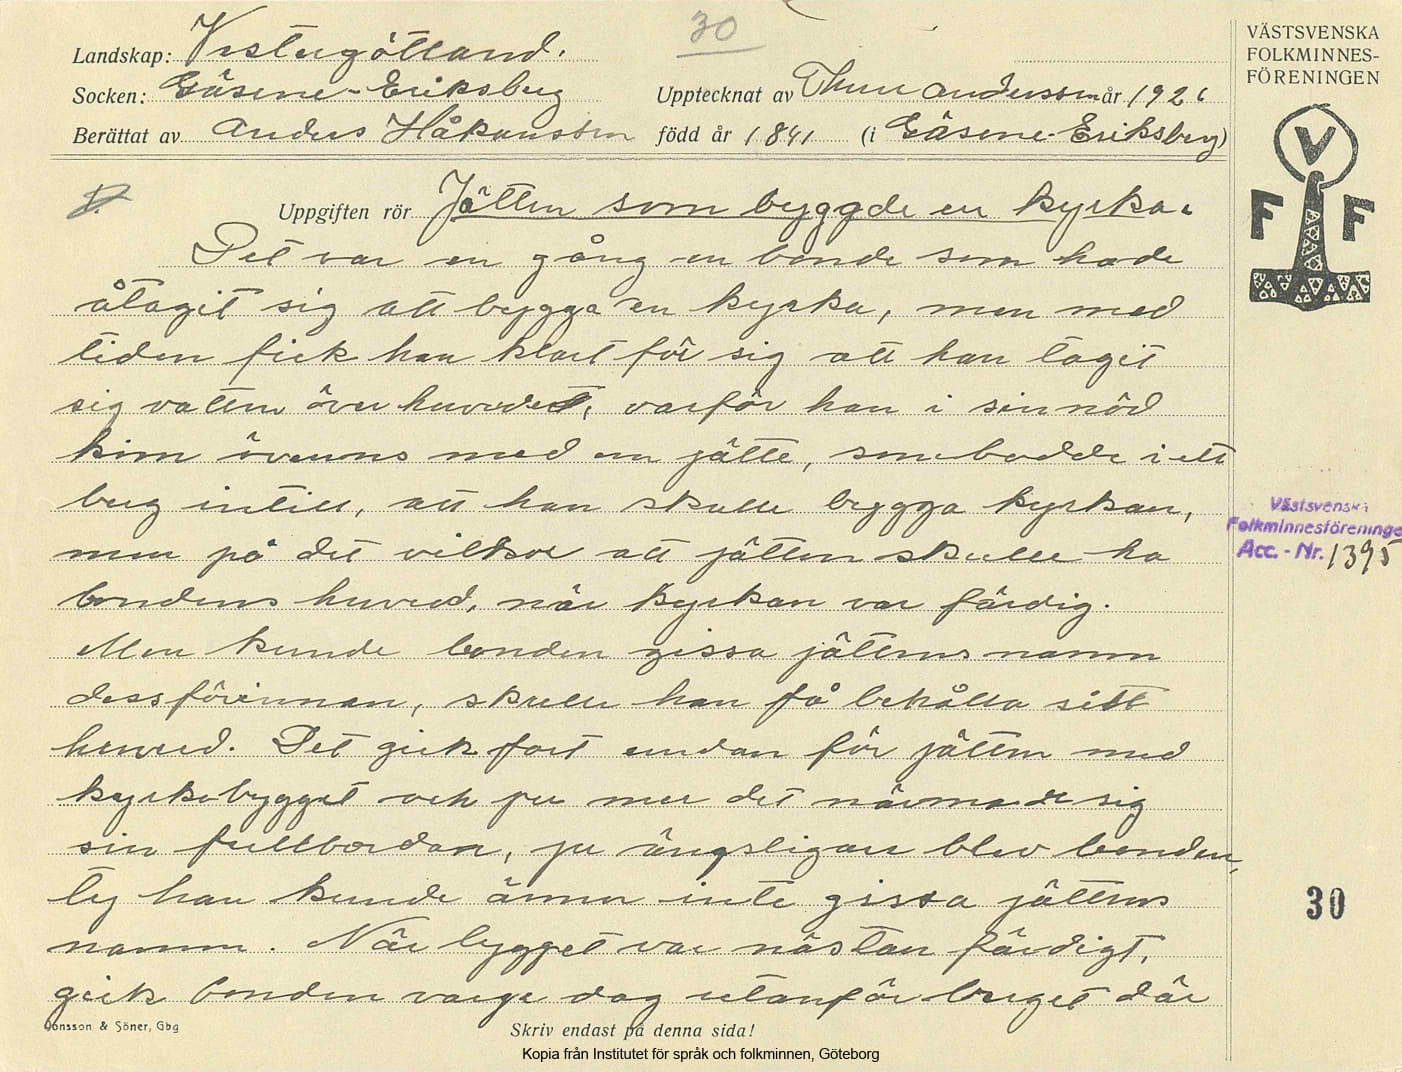 30
Landskap: Vestergötland.
Socken: Gäsene-Eriksberg
Upptecknat av Thure Andersson år 1926
Berättat av Anders Håkansson född år 1841 (i Gäsene-Eriksberg)
VÄSTSVENSKA
FOLKMINNES-
FÖRENINGEN
V
F F
Uppgiften rör Jätten som byggde en kyrka.
Det var en gång en bonde som hade
åtagit sig att bygga en kyrka, men med
tiden fick han klart för sig att han tagit
sig vatten över huvudet, varför han i sin nöd
kom överens med en jätte, som bodde i ett
berg intill, att han skulle bygga kyrkan,
men på det vilkor att jätten skulle ha
bondens huvud, när kyrkan var färdig.
Men kunde bonden gissa jättens namn
dessförinnan, skulle han få behålla sitt
huvud. Det gick fort undan för jätten med
kyrkobygget och ju mer det närmade sig
sin fullbordan, ju ängsligare blev bonden,
ty han kunde ännu inte gissa jättens
namn. När bygget var nästan färdigt,
gick bonden varje dag utanför berget där
Västsvenska
Folkminnesföreninge
Acc. - Nr. 1395
30
Jonsson & Söner, Gbg
Skriv endast på denna sida!
Kopia från Institutet för språk och folkminnen, Göteborg